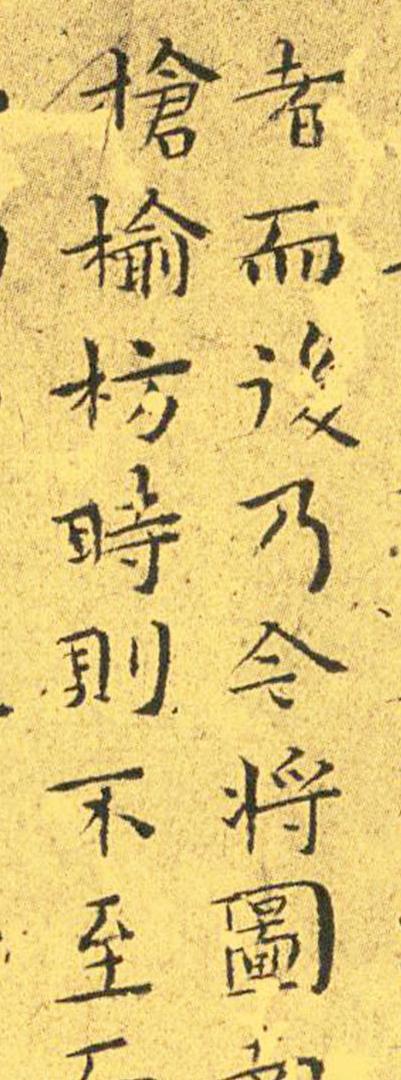 者而後乃今將圖
搶榆枋時則不至